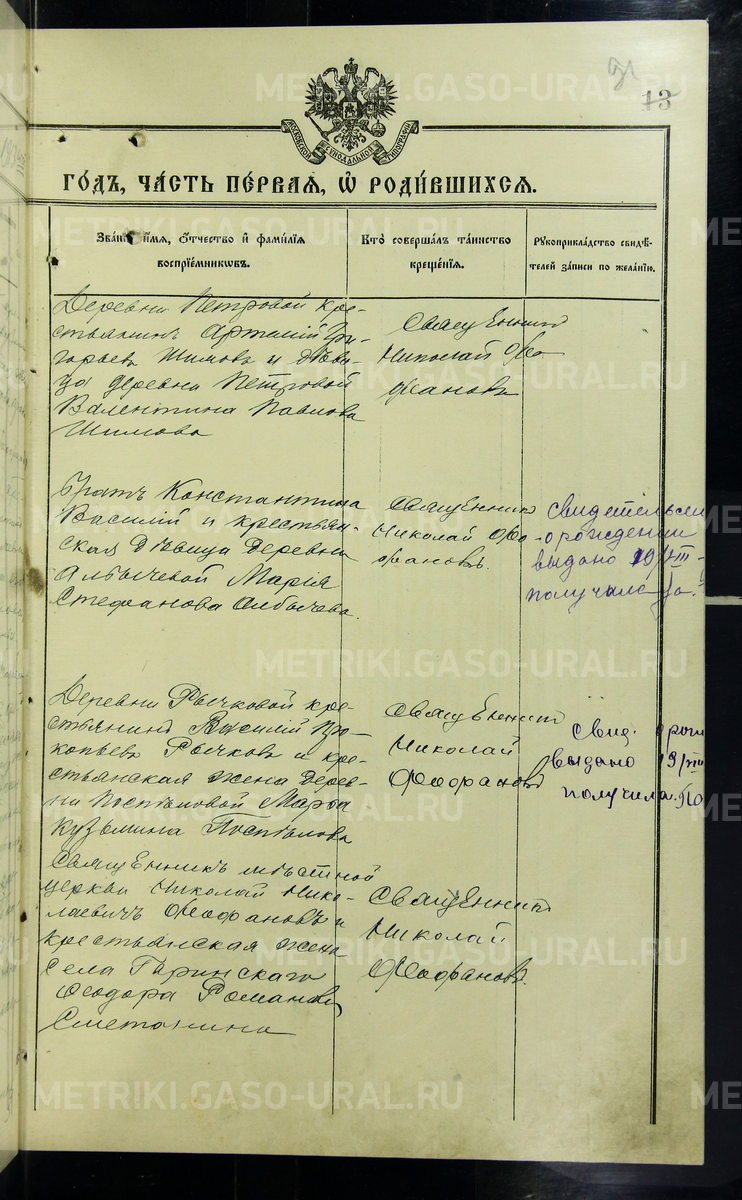 31
13
МОСКОВСКОЙ СѴНОДАЛЬНОЙ ТИПОГРАФІИ
ГОДЪ, ЧАСТЬ ПЕРВАЯ, Ѽ РОДИВШИХСЯ.
Званіе, имя, отчество и фамилія
воспріемниковъ.
Кто совершалъ таинство
крещенія.
Рукоприкладство свидѣ-
телей записи по желанію.
Деревни Петровой кре-
стьянинъ Артемій Гри-
горьевъ Шимовъ и дѣви-
ца деревни Петровой
Валентина Павлова
Шимова
Священникъ
Николай Ѳео
фановъ
Братъ Константина
Василій и крестьян-
ская дѣвица деревни
Албычевой Марія
Стефанова Албычева.
Священник
Николай Ѳео
фановъ.
Свидетельс
о рождении
выдано 19/VIII
получила
Деревни Рычковой кре-
стьянинъ Василій Про-
копьевъ Рычковъ и кре-
стьянская жена дерев-
ни Поспѣловой Марѳа
Кузьмина Поспѣлова
Священникъ
Николай
Ѳеофановъ
Свид. о рож
выдано 19/VIII
получила
Священникъ мѣстной
церкви Николай Нико-
лаевичъ Ѳеофановъ и
крестьянская жена
села Гаринскаго
Ѳеодора Романова
Сметанина
Священникъ
Николай
Ѳеофановъ.
METRIKI.GASO-URAL.RU